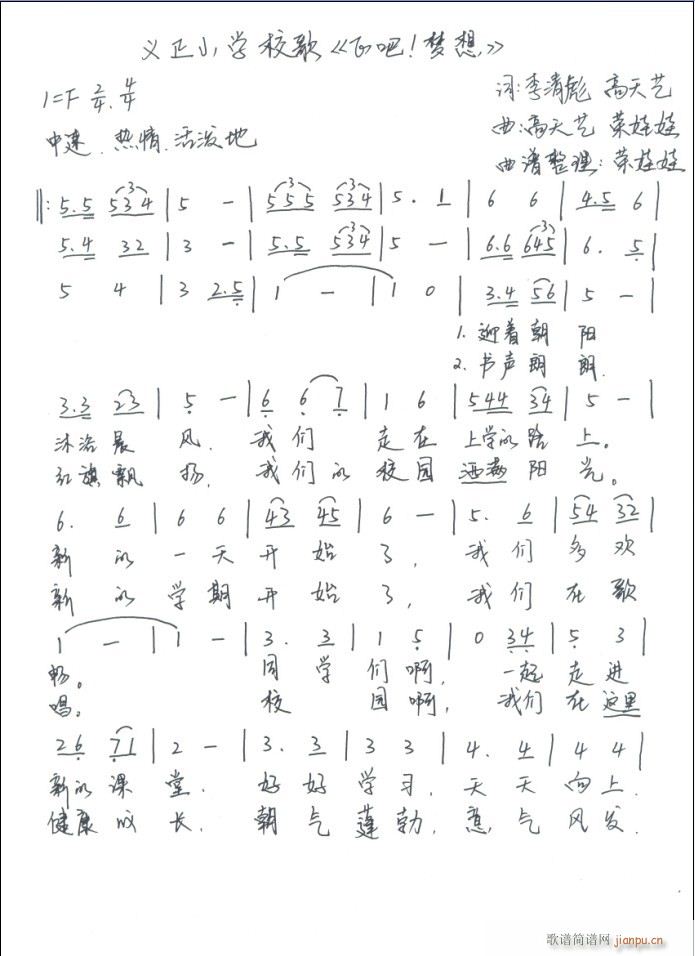 义正小学校歌《飞吧!梦想》
1=F 2/4 4/4
词:李清彪 高天艺
中速 热情、活泼地
曲:高天艺 荣娃娃
曲谱整理:荣娃娃
‖: 5.5 534 | 5 — | 555 534 | 5. 1 | 6 6 | 4.5 6 |
5.4 32 | 3 — | 5.5 534 | 5 — | 6.6 645 | 6. 5 |
5 4 | 3 2.5 | 1 — | 1 0 | 3.4 56 | 5 — |
1. 迎着朝 阳
2. 书声朗 朗.
3.3 23 | 5 — | 6 6 7 | 1 6 | 544 34 | 5 — |
沐浴晨 风. 我们 走在 上学的路 上。
红旗飘 扬, 我们的 校园 洒满阳 光。
6. 6 | 6 6 | 43 45 | 6 — | 5. 6 | 54 32 |
新 的 一 天 开 始 了, 我 们 多 欢
新 的 学 期 开 始 了, 我 们 在 歌
1 — | 1 — | 3. 3 | 1 5 | 0 34 | 5 3 |
畅。 同 学 们 啊, 一起 走 进
唱。 校 园 啊, 我们 在 这里
26 71 | 2 — | 3. 3 | 3 3 | 4. 4 | 4 4 |
新的 课 堂. 好 好 学 习, 天 天 向 上.
健康 成 长. 朝 气 蓬 勃, 意 气 风 发.
歌谱简谱网 jianpu.cn